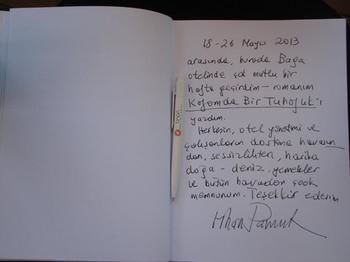 18-26 Mayıs 2013
arasında, burada Bağa
otelinde çok mutlu bir
hafta geçirdim - romanım
Kafamda Bir Tuhaflık'ı
yazdım.
Herkesin, otel yönetimi ve
çalışanların dostane havasın
dan, sessizlikten, harika
doğa - deniz, yemekler
ve bütün havadan çook
memnunum. Teşekkür ederim
Orhan Pamuk